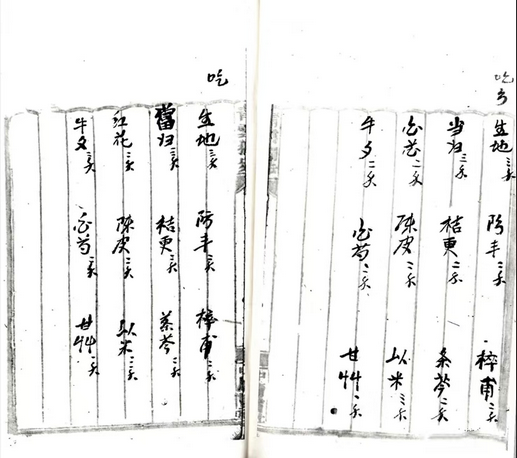 吃
生地三钱 防丰三钱 梓甫三钱
当归三钱 桔更二钱 条芩二钱
陈皮二钱 以米三钱
牛夕二钱 白芍二钱 甘艸二钱
吃
生地三钱 防丰三钱 梓甫三钱
當归三钱 桔更三钱 条芩三钱
红花三钱 陈皮三钱 以米三钱
牛夕三钱 白芍三钱 甘艸三钱